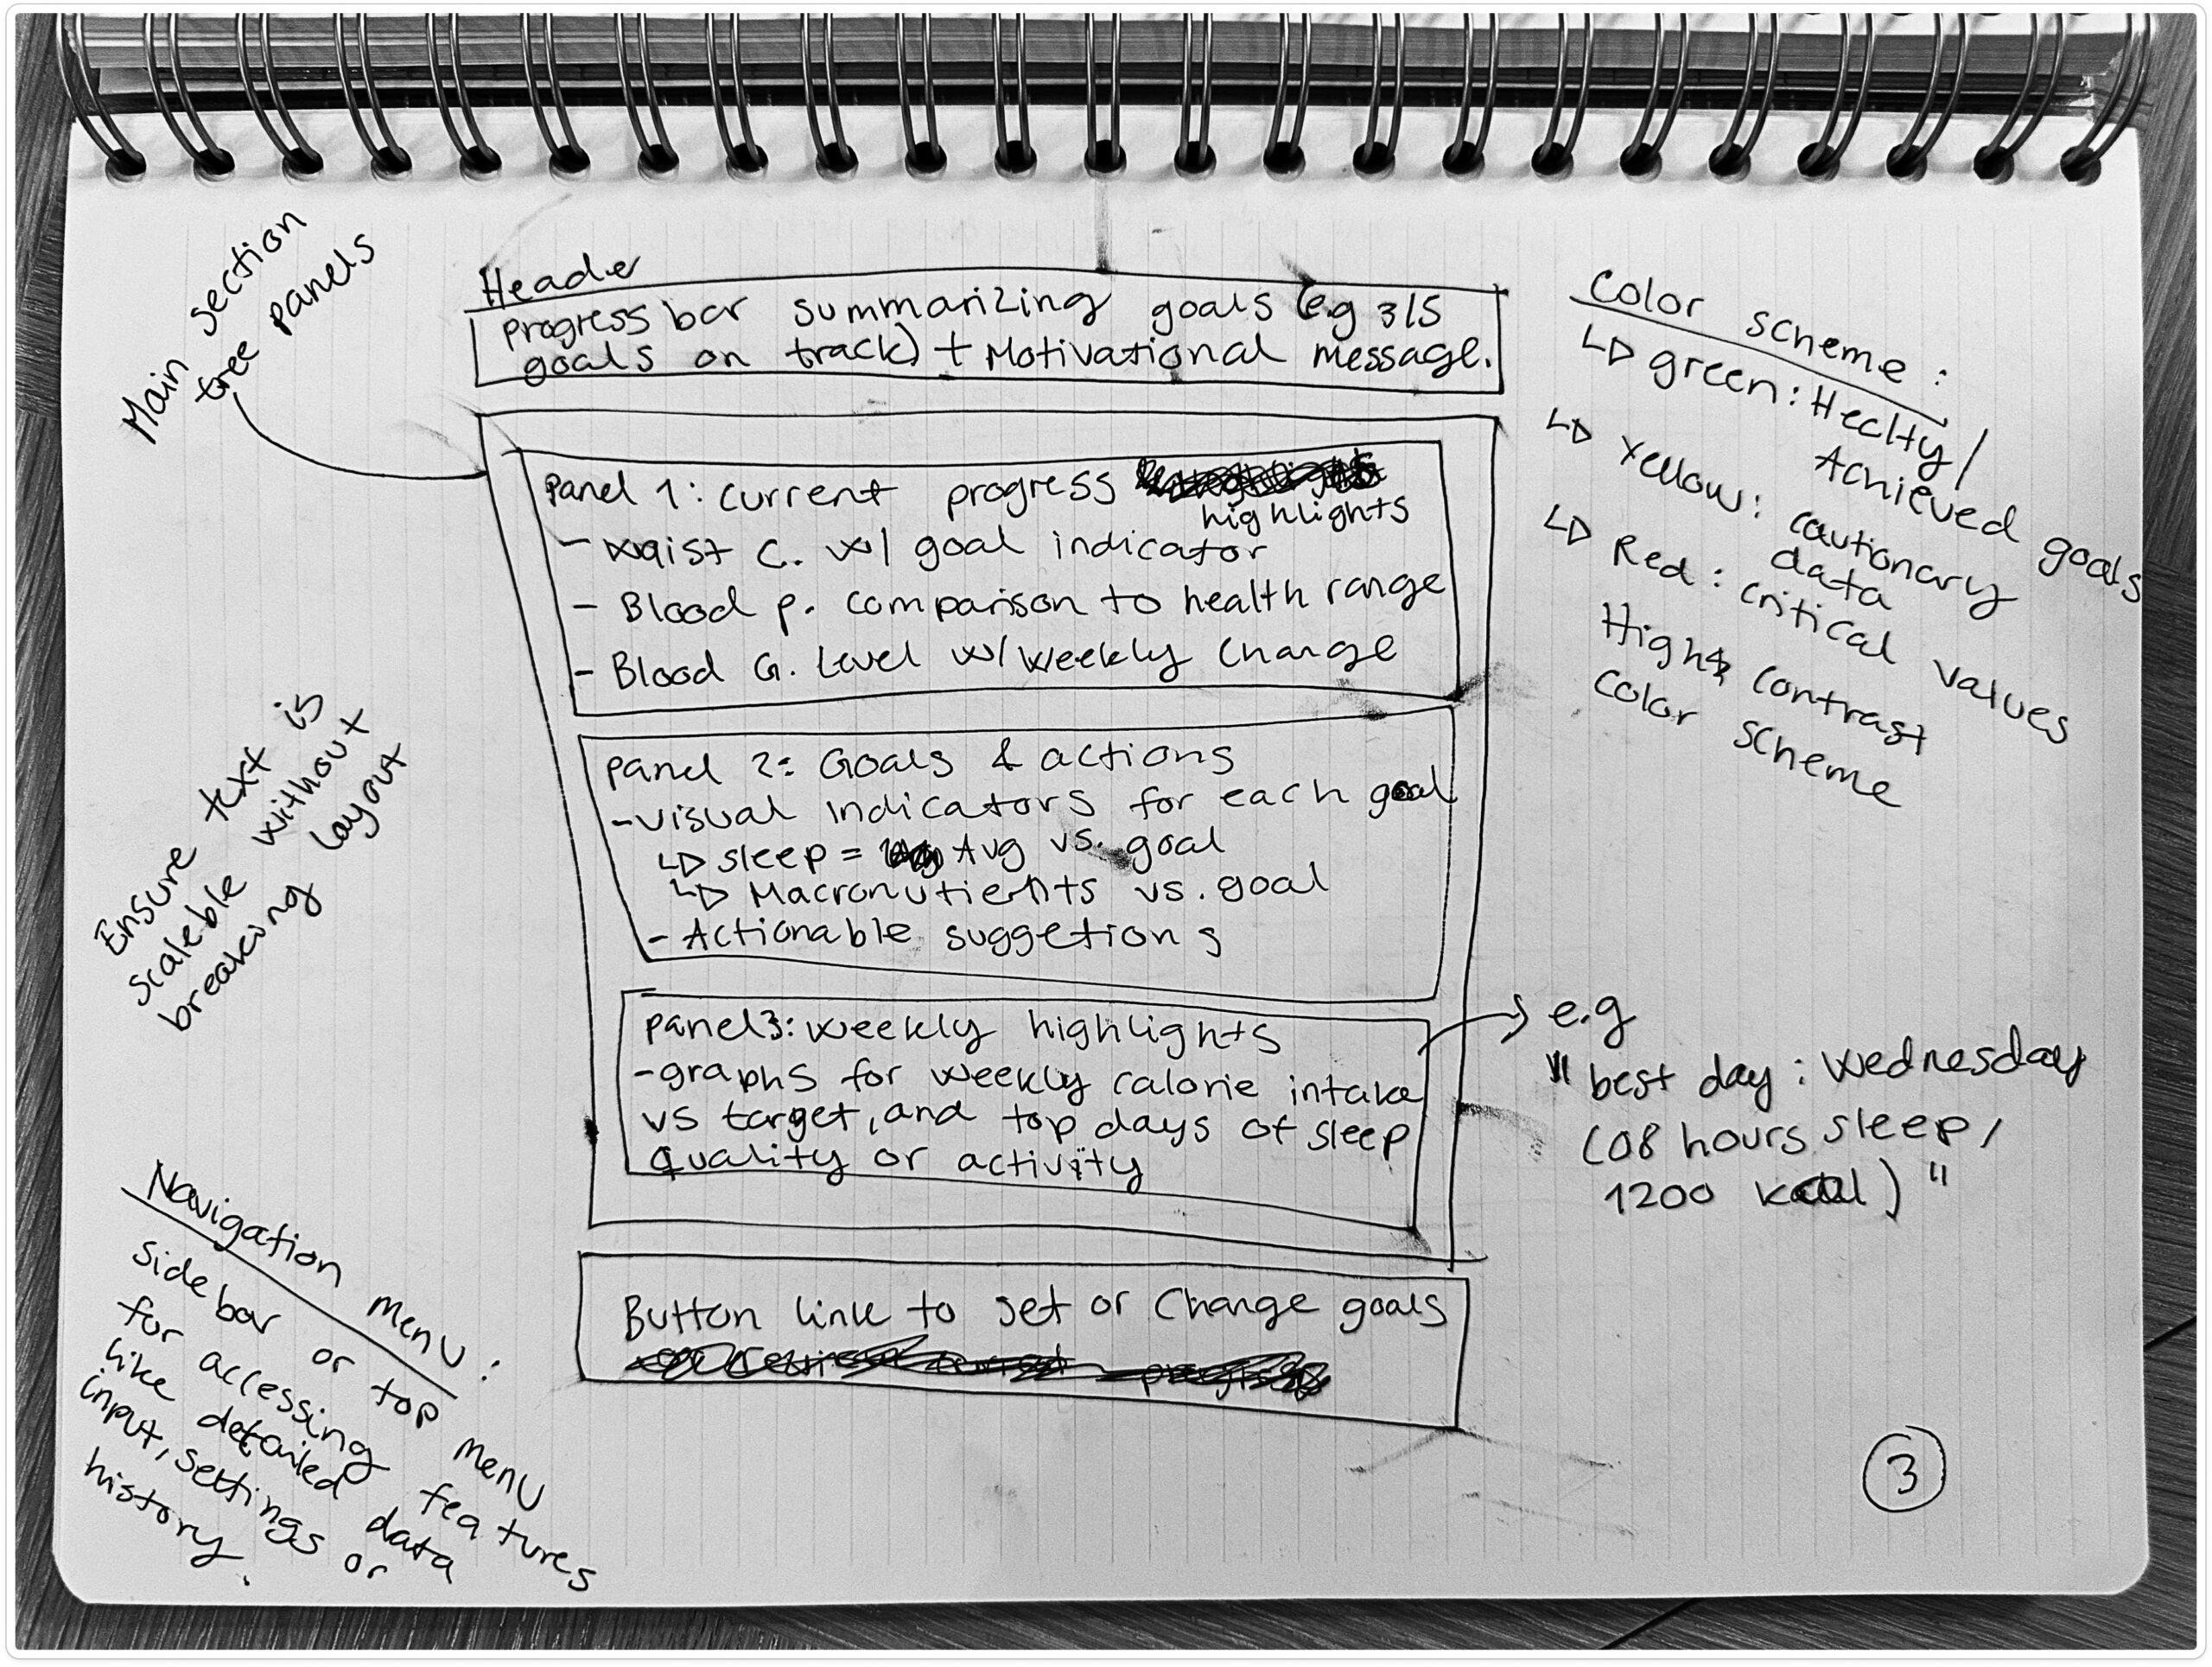 Main section
tree panels
Header
progress bar summarizing goals (e.g 3/5
goals on track) + Motivational message.
panel 1: current progress
highlights
- waist c. w/ goal indicator
- Blood p. comparison to health range
- Blood G. Level w/ weekly change
panel 2: Goals & actions
- visual indicators for each goal
↳ sleep = Avg vs. goal
↳ Macronutients vs. goal
- Actionable suggetions
panel3: weekly highlights
- graphs for weekly calorie intake
vs target, and top days of sleep
quality or activity
Button link to set or change goals
Color scheme:
↳ green: Heclty/
Achieved goals
↳ Yellow: cautionary
data
↳ Red: critical values
High contrast
color scheme
e.g
"best day: wednesday
(08 hours sleep,
1200 kcal)"
Ensure text is
scaleble without
breaking layout
Navigation menu:
sidebar or top menu
for accessing features
like detailed data
input, settings or
history.
3